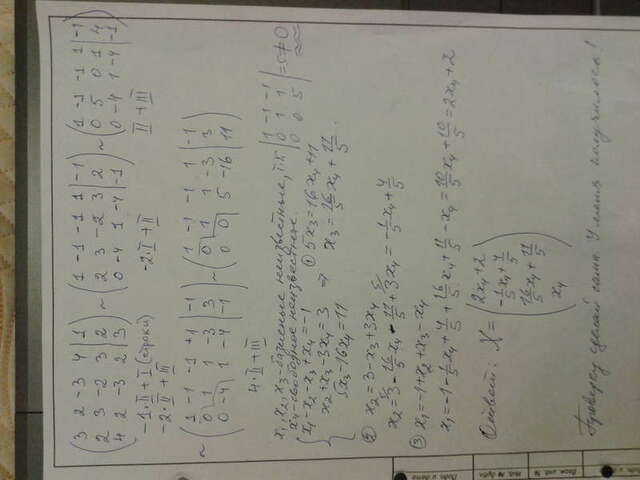 (3 2 -3 4 | 1; 2 3 -2 3 | 2; 4 2 -3 2 | 3) ~ (1 -1 -1 1 | -1; 2 3 -2 3 | 2; 0 -4 1 -4 | -1) ~ (1 -1 -1 1 | -1; 0 5 0 1 | 4; 0 -4 1 -4 | -1)
-1·II+I (строки)
-2·II+III
-2·I+II
II+III
~ (1 -1 -1 +1 | -1; 0 1 1 -3 | 3; 0 -4 1 -4 | -1) ~ (1 -1 -1 1 | -1; 0 1 1 -3 | 3; 0 0 5 -16 | 11)
4·II+III
x1, x2, x3 - базисные неизвестные, т.к. |1 -1 -1; 0 1 1; 0 0 5| = 5 ≠ 0
x4 - свободное неизвестное.
x1-x2-x3+x4=-1
x2+x3-3x4=3
5x3-16x4=11
① 5x3=16x4+11
⇒ x3=16/5 x4+11/5.
② x2=3-x3+3x4
x2=3-16/5 x4-11/5+3x4=-1/5 x4+4/5
③ x1=-1+x2+x3-x4
x1=-1-1/5 x4+4/5+16/5 x4+11/5-x4=10/5 x4+10/5=2x4+2
Ответ: X=(2x4+2; -1/5 x4+4/5; 16/5 x4+11/5; x4)
Проверку сделай сама. У меня получилось!